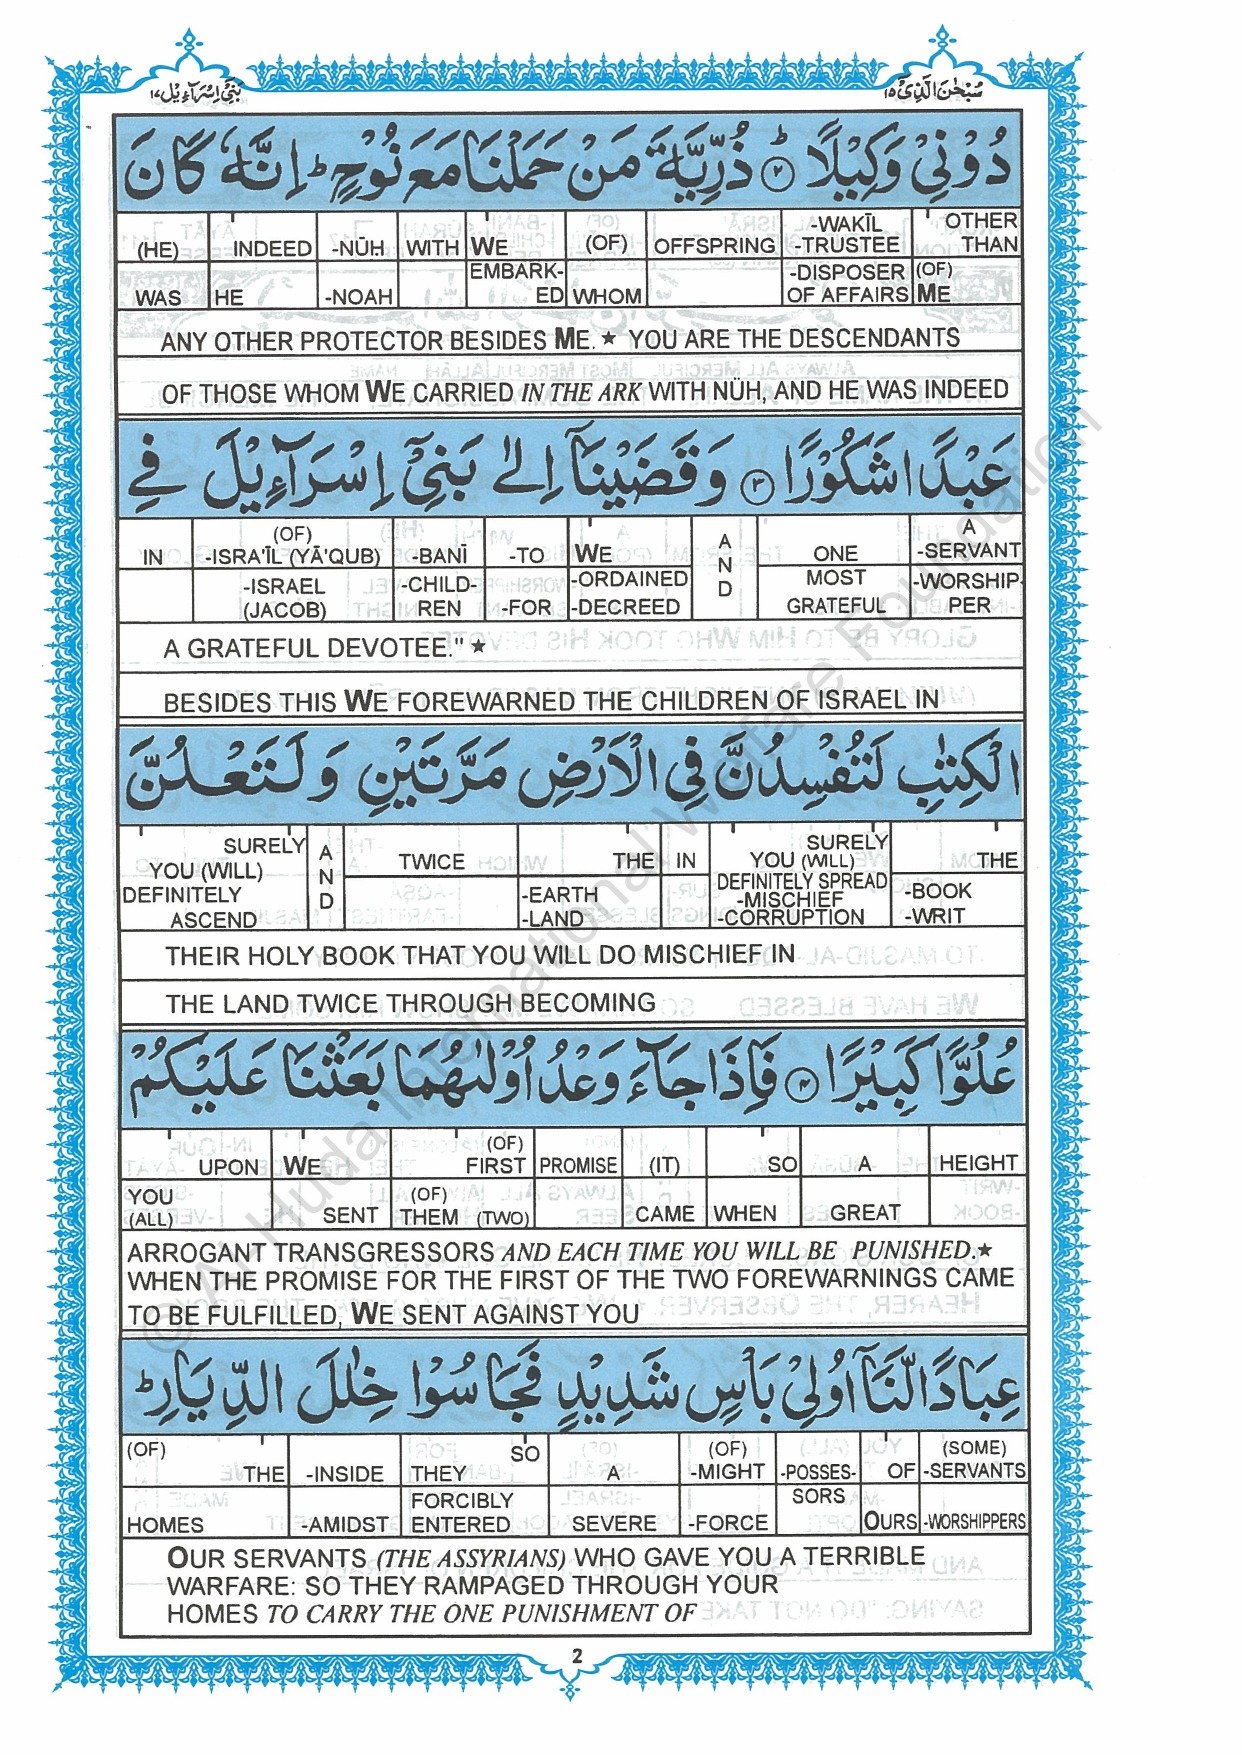 بَنِيْٓ اِسْرَآءِيْل ١٧
سُبْحٰنَ الَّذِيْٓ ١٥
دُوْنِيْ وَكِيْلًا ۟ؕ ٢ ذُرِّيَّةَ مَنْ حَمَلْنَا مَعَ نُوْحٍ ؕ اِنَّهٗ كَانَ
(HE) INDEED -NŪH WITH WE (OF) OFFSPRING -WAKĪL -TRUSTEE OTHER THAN
WAS HE -NOAH EMBARK-ED WHOM -DISPOSER OF AFFAIRS (OF) ME
ANY OTHER PROTECTOR BESIDES ME. ★ YOU ARE THE DESCENDANTS
OF THOSE WHOM WE CARRIED IN THE ARK WITH NŪH, AND HE WAS INDEED
عَبْدًا شَكُوْرًا ٣ وَ قَضَيْنَاۤ اِلٰى بَنِيْٓ اِسْرَآءِيْلَ فِي
IN (OF) -ISRA'ĪL (YĀ'QUB) -BANĪ -TO WE AND ONE A -SERVANT
-ISRAEL (JACOB) -CHILD-REN -FOR -ORDAINED -DECREED MOST GRATEFUL -WORSHIP-PER
A GRATEFUL DEVOTEE." ★
BESIDES THIS WE FOREWARNED THE CHILDREN OF ISRAEL IN
الْكِتٰبِ لَتُفْسِدُنَّ فِي الْاَرْضِ مَرَّتَيْنِ وَ لَتَعْلُنَّ
SURELY YOU (WILL) DEFINITELY ASCEND AND TWICE THE IN SURELY YOU (WILL) DEFINITELY SPREAD -MISCHIEF -CORRUPTION THE
-EARTH -LAND -BOOK -WRIT
THEIR HOLY BOOK THAT YOU WILL DO MISCHIEF IN
THE LAND TWICE THROUGH BECOMING
عُلُوًّا كَبِيْرًا ٤ فَاِذَا جَآءَ وَعْدُ اُوْلٰىهُمَا بَعَثْنَا عَلَيْكُمْ
UPON WE (OF) FIRST PROMISE (IT) SO A HEIGHT
YOU (ALL) SENT (OF) THEM (TWO) CAME WHEN GREAT
ARROGANT TRANSGRESSORS AND EACH TIME YOU WILL BE PUNISHED.★
WHEN THE PROMISE FOR THE FIRST OF THE TWO FOREWARNINGS CAME
TO BE FULFILLED, WE SENT AGAINST YOU
عِبَادًا لَّنَاۤ اُولِيْ بَاْسٍ شَدِيْدٍ فَجَاسُوْا خِلٰلَ الدِّيَارِ ؕ
(OF) THE -INSIDE SO THEY A (OF) -MIGHT -POSSES-SORS OF (SOME) -SERVANTS
HOMES -AMIDST FORCIBLY ENTERED SEVERE -FORCE OURS -WORSHIPPERS
OUR SERVANTS (THE ASSYRIANS) WHO GAVE YOU A TERRIBLE
WARFARE: SO THEY RAMPAGED THROUGH YOUR
HOMES TO CARRY THE ONE PUNISHMENT OF
2
© Al Huda International Welfare Foundation